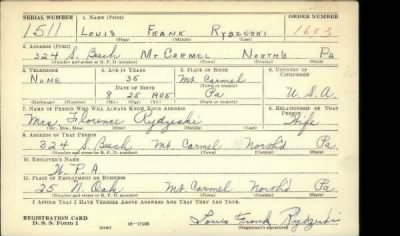 SERIAL NUMBER 1. NAME (Print) ORDER NUMBER
1511 LOUIS FRANK RYDZESKI 1603
(First) (Middle) (Last)
2. ADDRESS (Print)
324 S. Beech MT CARMEL NORTH'D PA
(Number and street or R. F. D. number) (Town) (County) (State)
3. TELEPHONE 4. AGE IN YEARS 5. PLACE OF BIRTH 6. COUNTRY OF CITIZENSHIP
NONE 35 Mt. Carmel
DATE OF BIRTH (Town or county)
8 25 1905 Pa U.S.A.
(Exchange) (Number) (Mo.) (Day) (Yr.) (State or country)
7. NAME OF PERSON WHO WILL ALWAYS KNOW YOUR ADDRESS 8. RELATIONSHIP OF THAT PERSON
Mrs. Florence Rydzeski Wife
(Mr., Mrs., Miss) (First) (Middle) (Last)
9. ADDRESS OF THAT PERSON
324 S. Beech Mt. Carmel North'd Pa.
(Number and street or R. F. D. number) (Town) (County) (State)
10. EMPLOYER'S NAME
W. P. A
11. PLACE OF EMPLOYMENT OR BUSINESS
25 N. Oak Mt. Carmel North'd Pa.
(Number and street or R. F. D. number) (Town) (County) (State)
I AFFIRM THAT I HAVE VERIFIED ABOVE ANSWERS AND THAT THEY ARE TRUE.
REGISTRATION CARD
D. S. S. Form 1 (over) Louis Frank Rydzeski
(Registrant's signature)